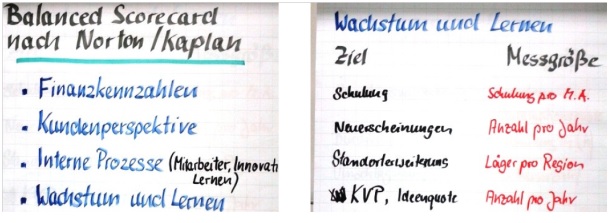 Balanced Scorecard
nach Norton/Kaplan
• Finanzkennzahlen
• Kundenperspektive
• Interne Prozesse (Mitarbeiter, Innovati
Lernen)
• Wachstum und Lernen
Wachstum und Lernen
Ziel Messgröße
Schulung Schulung pro M.A.
Neuerscheinungen Anzahl pro Jahr
Standorterweiterung Läger pro Region
KVP, Ideenquote Anzahl pro Jahr